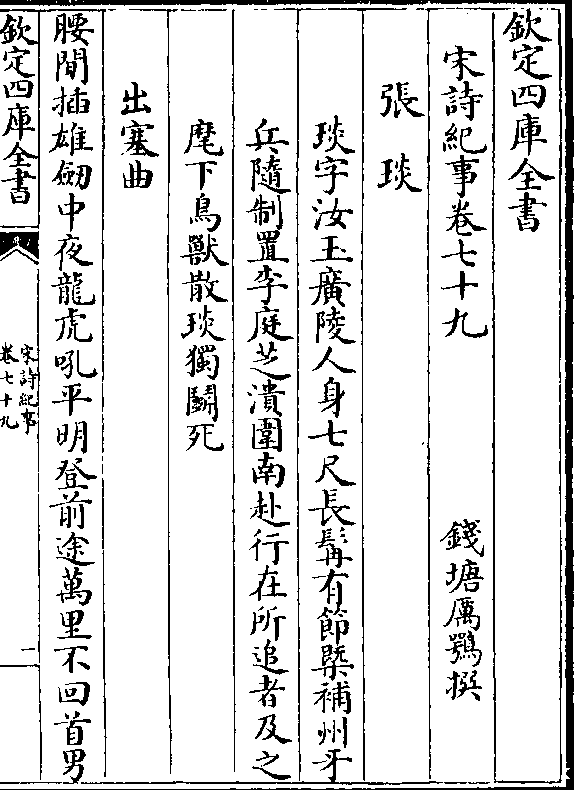 欽定四庫全書
宋詩紀事卷七十九
錢塘厲鶚撰
張琰
琰字汝玉廣陵人身七尺長髯有節槩補州牙
兵隨制置李庭芝潰圍南赴行在所追者及之
麾下鳥獸散琰獨鬭死
出塞曲
腰間插雄劒中夜龍虎吼平明登前途萬里不回首男
欽定四庫全書
宋詩紀事
卷七十九
一